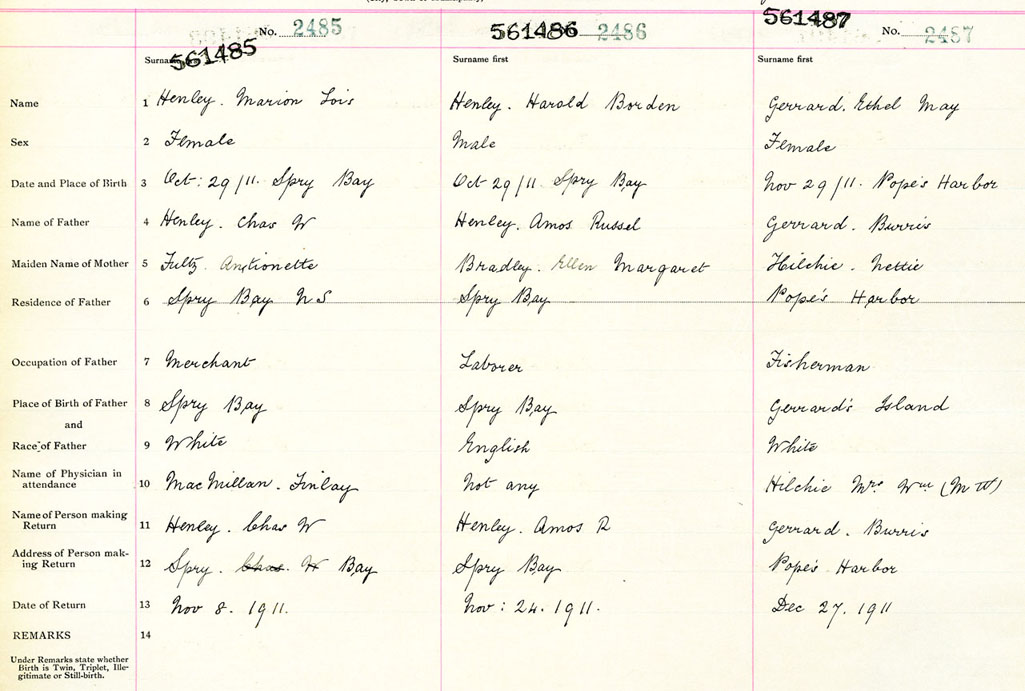 No. 2485 561486 2486 561487 No. 2487
561485
Surname first Surname first
Name 1 Henley. Marion Lois Henley. Harold Borden Gerrard. Ethel May
Sex 2 Female Male Female
Date and Place of Birth 3 Oct: 29/11. Spry Bay Oct 29/11 Spry Bay Nov 29/11. Pope's Harbor
Name of Father 4 Henley. Chas W Henley. Amos Russel Gerrard. Burris
Maiden Name of Mother 5 Fultz. Antionette Bradley. Ellen Margaret Hilchie. Nettie
Residence of Father 6 Spry Bay N S Spry Bay Pope's Harbor
Occupation of Father 7 Merchant Laborer Fisherman
Place of Birth of Father 8 Spry Bay Spry Bay Gerrard's Island
and
Race of Father 9 White English White
Name of Physician in
attendance 10 MacMillan. Finlay Not any Hilchie Mrs Wm (M W)
Name of Person making
Return 11 Henley. Chas W Henley. Amos R Gerrard. Burris
Address of Person mak-
ing Return 12 Spry. Chas. W Bay Spry Bay Pope's Harbor
Date of Return 13 Nov 8. 1911. Nov: 24. 1911. Dec 27. 1911
REMARKS 14
Under Remarks state whether
Birth is Twin, Triplet, Ille-
gitimate or Still-birth.